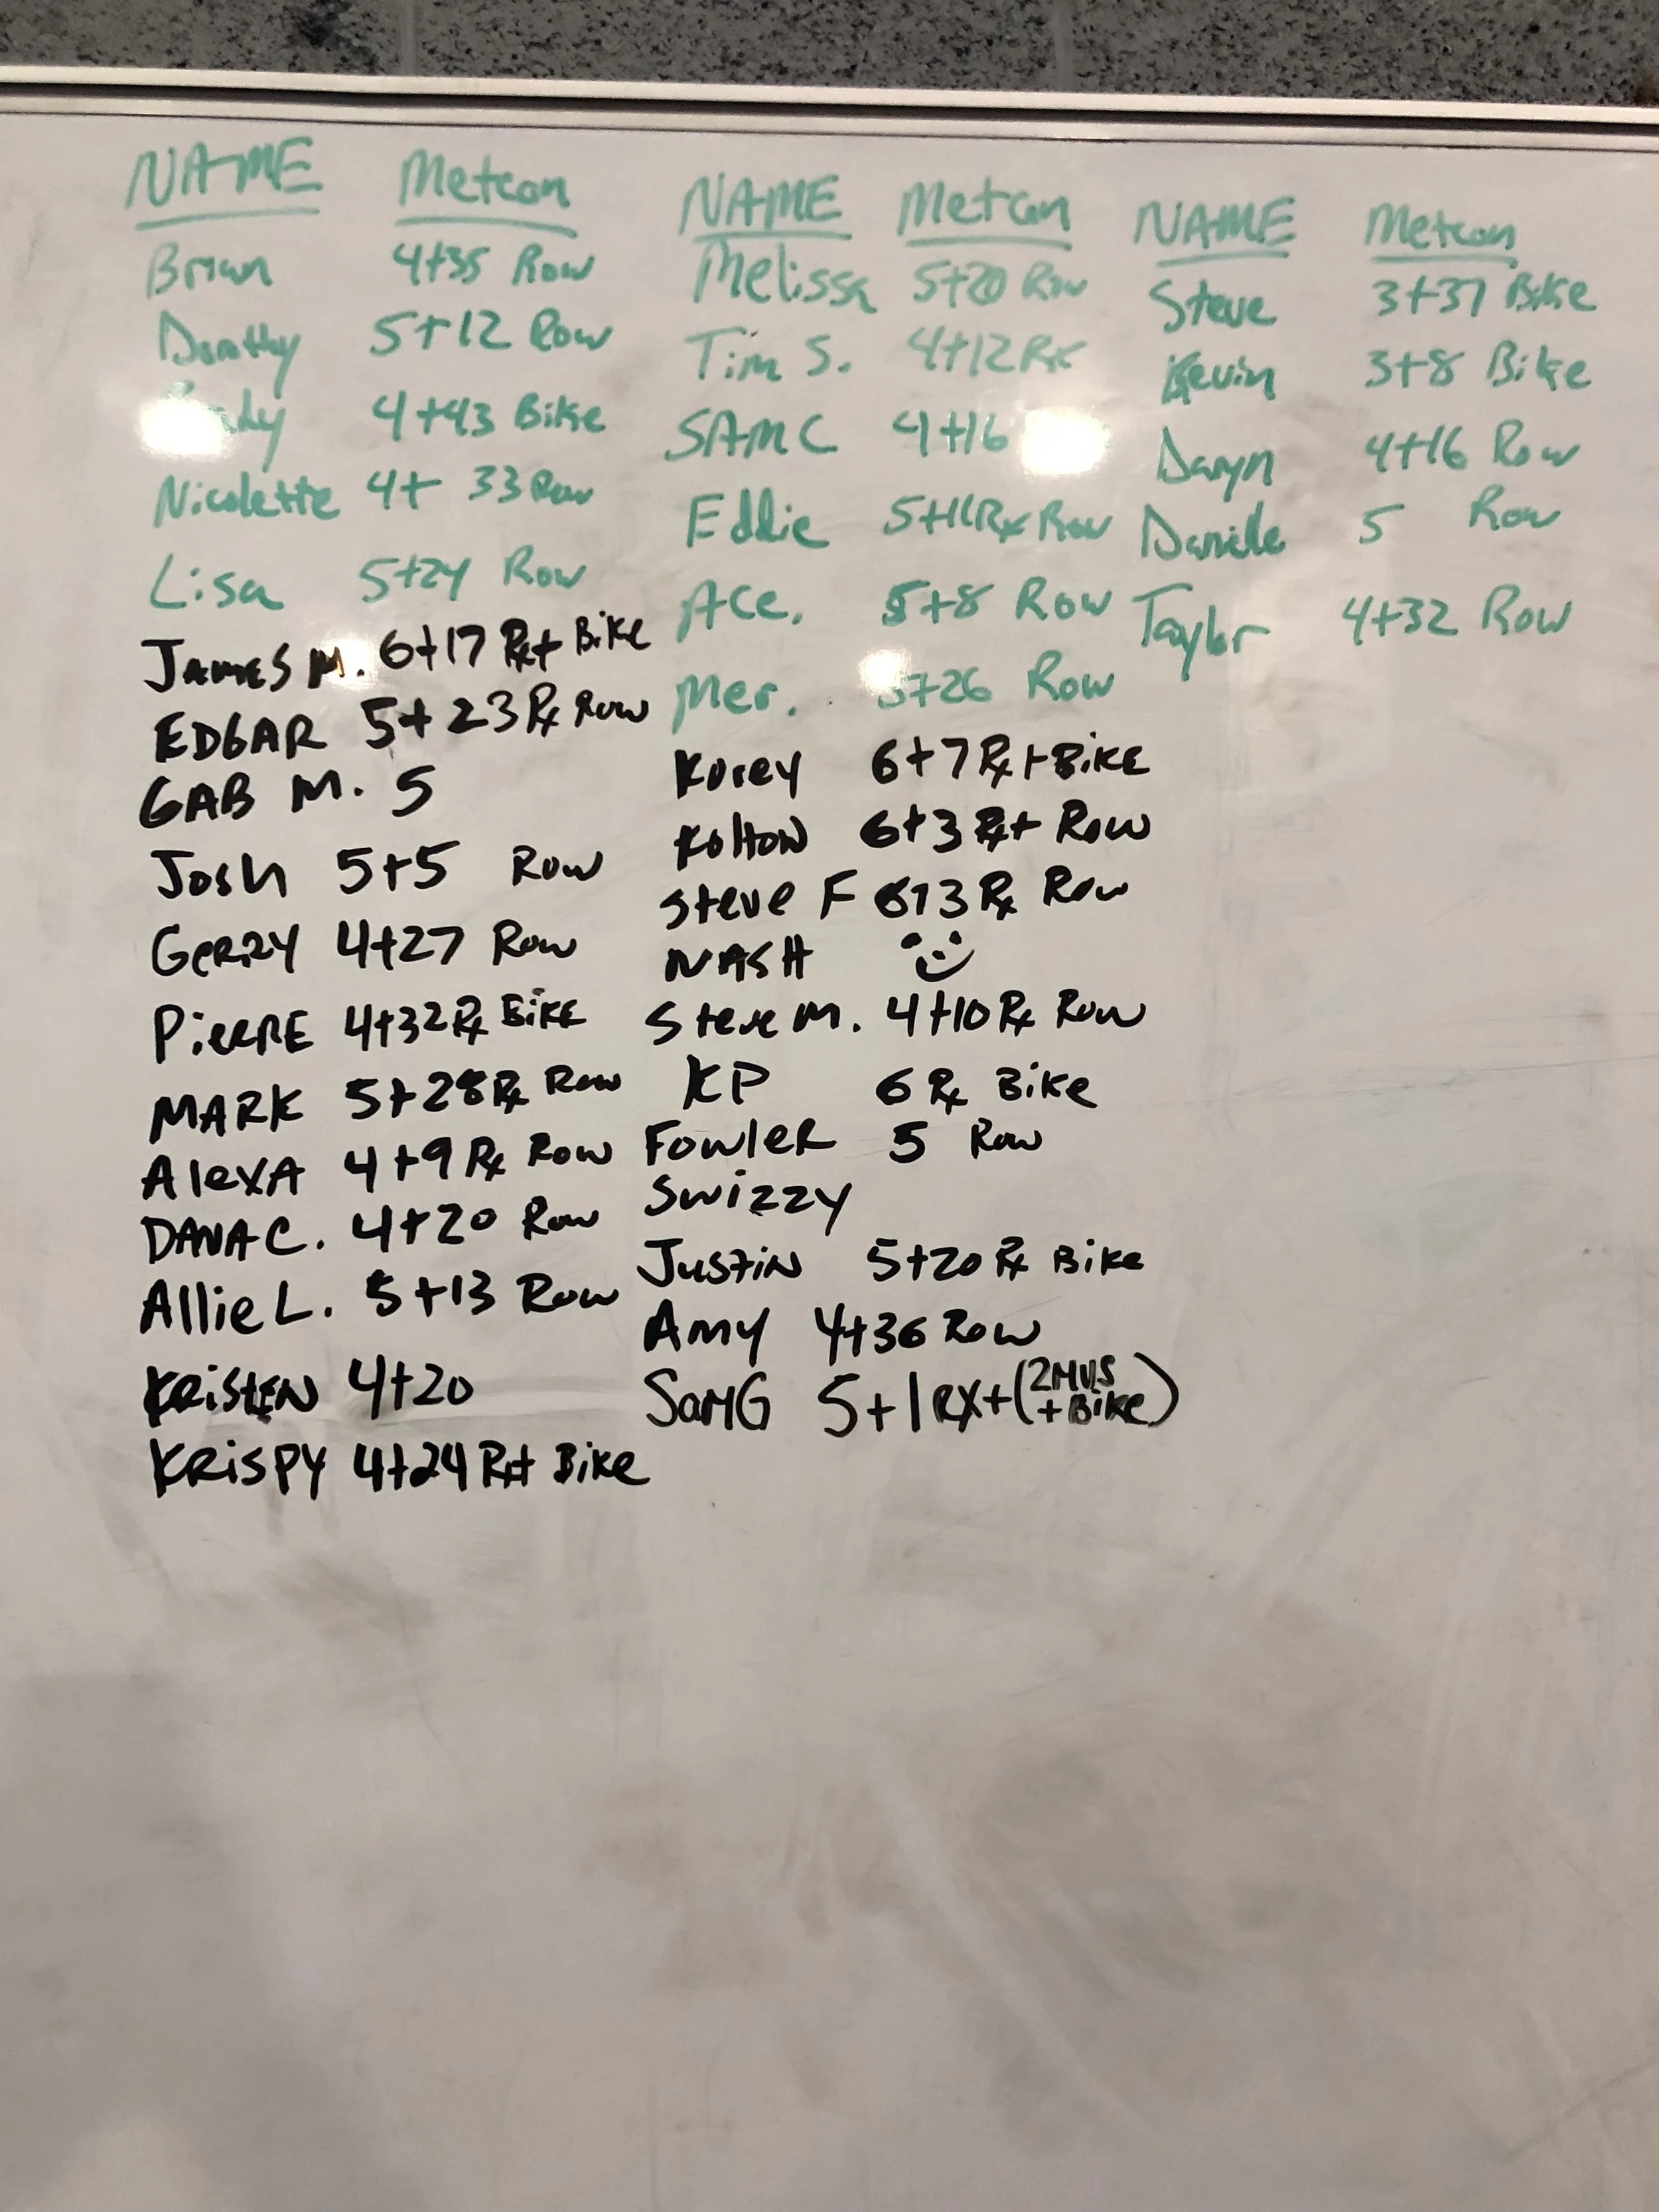 NAME Metcon
Brian 4+35 Row
Dorothy 5+12 Row
4+43 Bike
Nicolette 4+ 33 Row
Lisa 5+24 Row
JAMES M. 6+17 Rx+ Bike
EDGAR 5+23 Rx Row
GAB M. 5
Josh 5+5 Row
GeRRY 4+27 Row
PieRRE 4+32 Rx BiKE
MARK 5+28 Rx Row
AlexA 4+9 Rx Row
DANA C. 4+20 Row
Allie L. 5+13 Row
KRiStEN 4+20
KRiSPY 4+24 Rx+ Bike
NAME Metcon
Melissa 5+20 Row
Tim S. 4+12 Rx
SAM C 4+16
Eddie 5+11 Rx Row
Ace. 5+8 Row
Mer. +26 Row
Korey 6+7 Rx+ BiKE
Kolton 6+3 Rx+ Row
Steve F 6+3 Rx Row
NASH
Steve M. 4+10 Rx Row
KP 6 Rx Bike
FowleR 5 Row
Swizzy
Justin 5+20 Rx Bike
Amy 4+36 Row
SamG 5+1 RX+ (2MUS + Bike)
NAME Metcon
Steve 3+37 Bike
Kevin 3+8 Bike
Daryn 4+16 Row
Danielle 5 Row
Taylor 4+32 Row